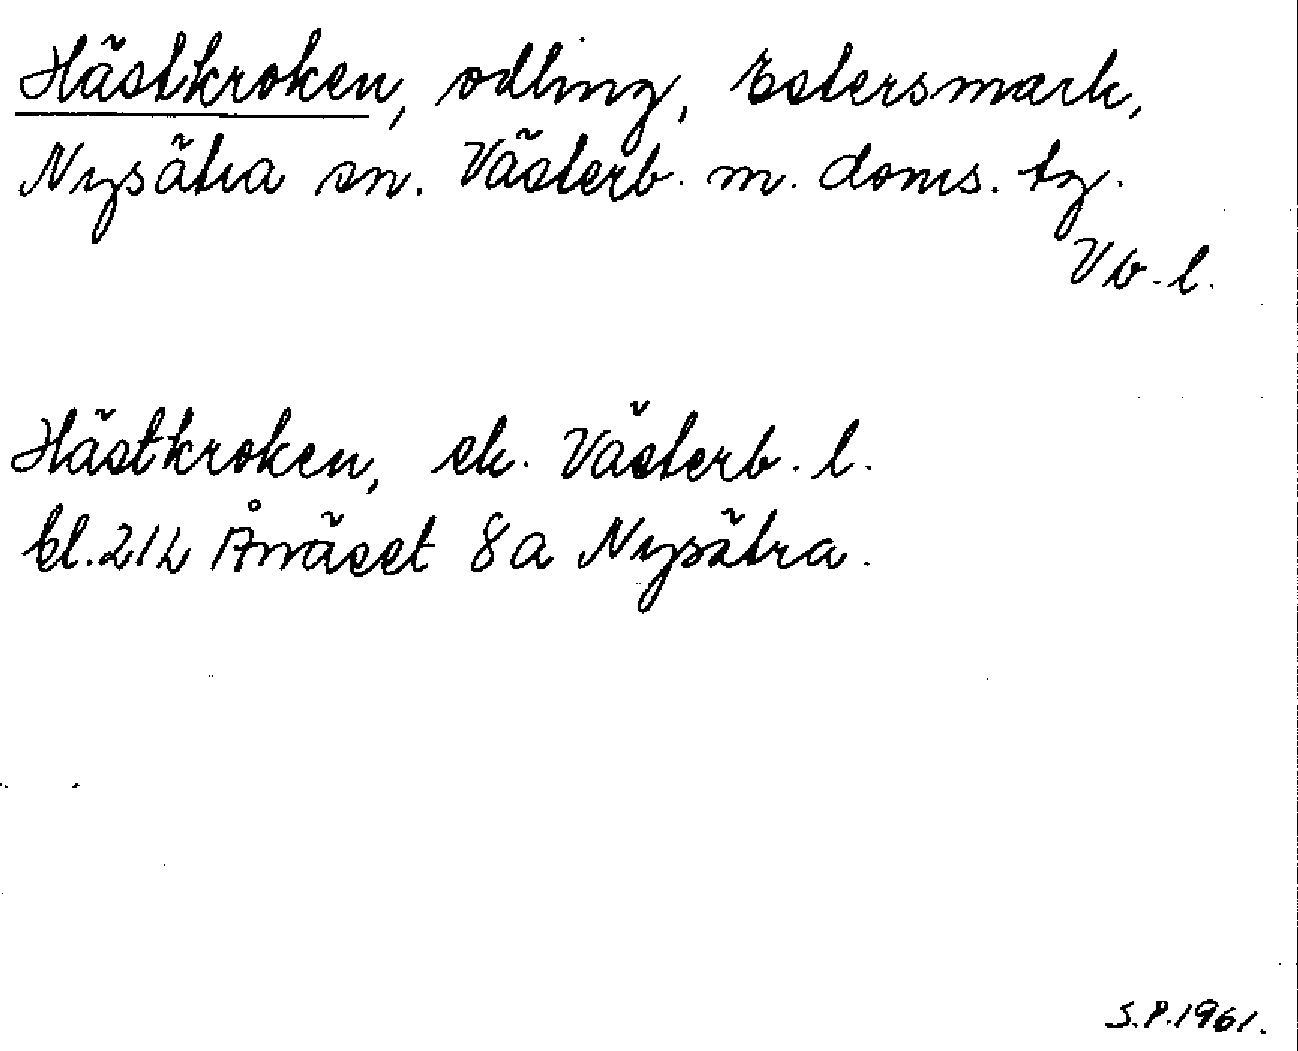 Hästkroken, odling, Estersmark,
Nysätra sn. Västerb. m. doms. tg.
Vb. l.
Hästkroken, ek. Västerb. l.
bl. 21L Ånäset 8a Nysätra.
S.P. 1961.